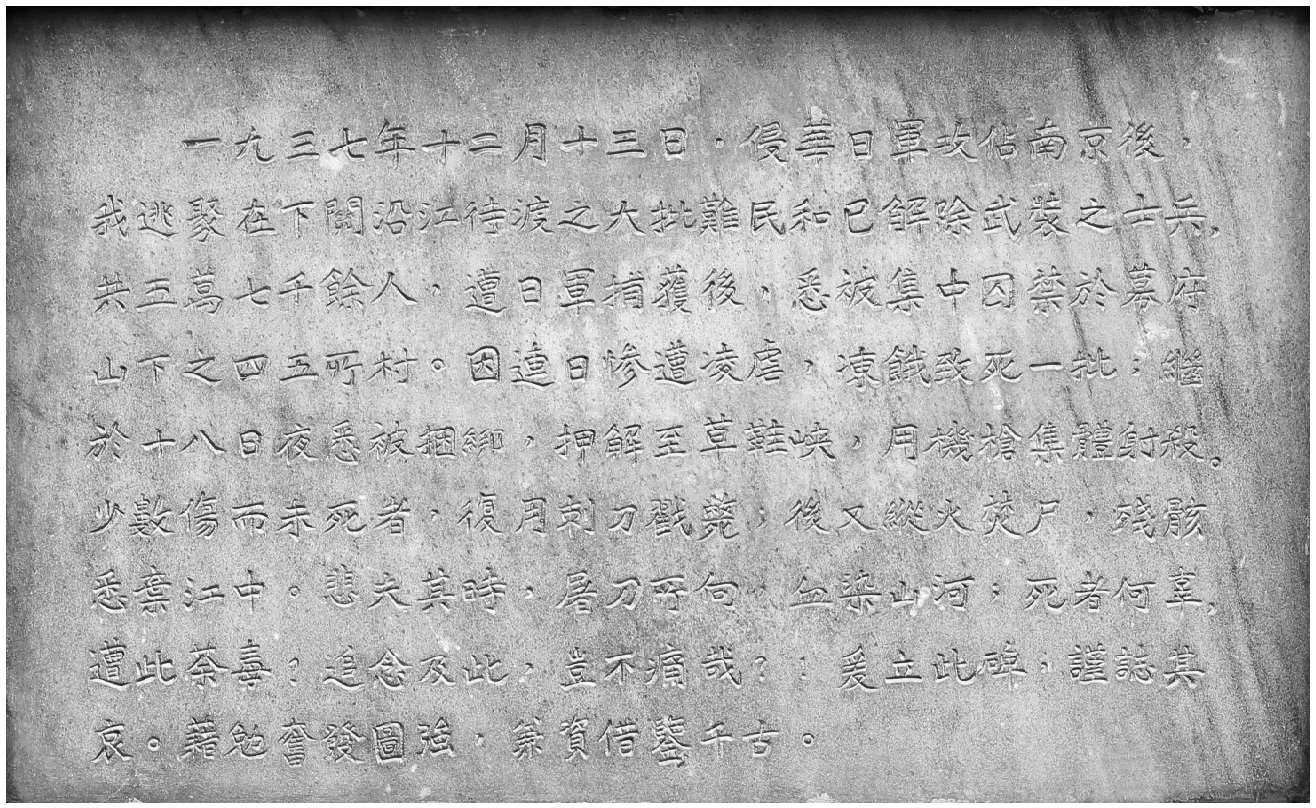 一九三七年十二月十三日，侵華日軍攻佔南京後，
我逃聚在下關沿江待渡之大批難民和已解除武裝之士兵，
共五萬七千餘人，遭日軍捕獲後，悉被集中囚禁於幕府
山下之四五所村。因連日慘遭凌虐，凍餓致死一批，繼
於十八日夜悉被捆綁，押解至草鞋峽，用機槍集體射殺。
少數傷而未死者，復用刺刀戳斃，後又縱火焚尸，殘骸
悉棄江中。悲夫其時，屠刀所向，血染山河；死者何辜，
遭此荼毒？追念及此，豈不痛哉？！爰立此碑，謹誌其
哀。藉勉奮發圖強，兼資借鑒千古。